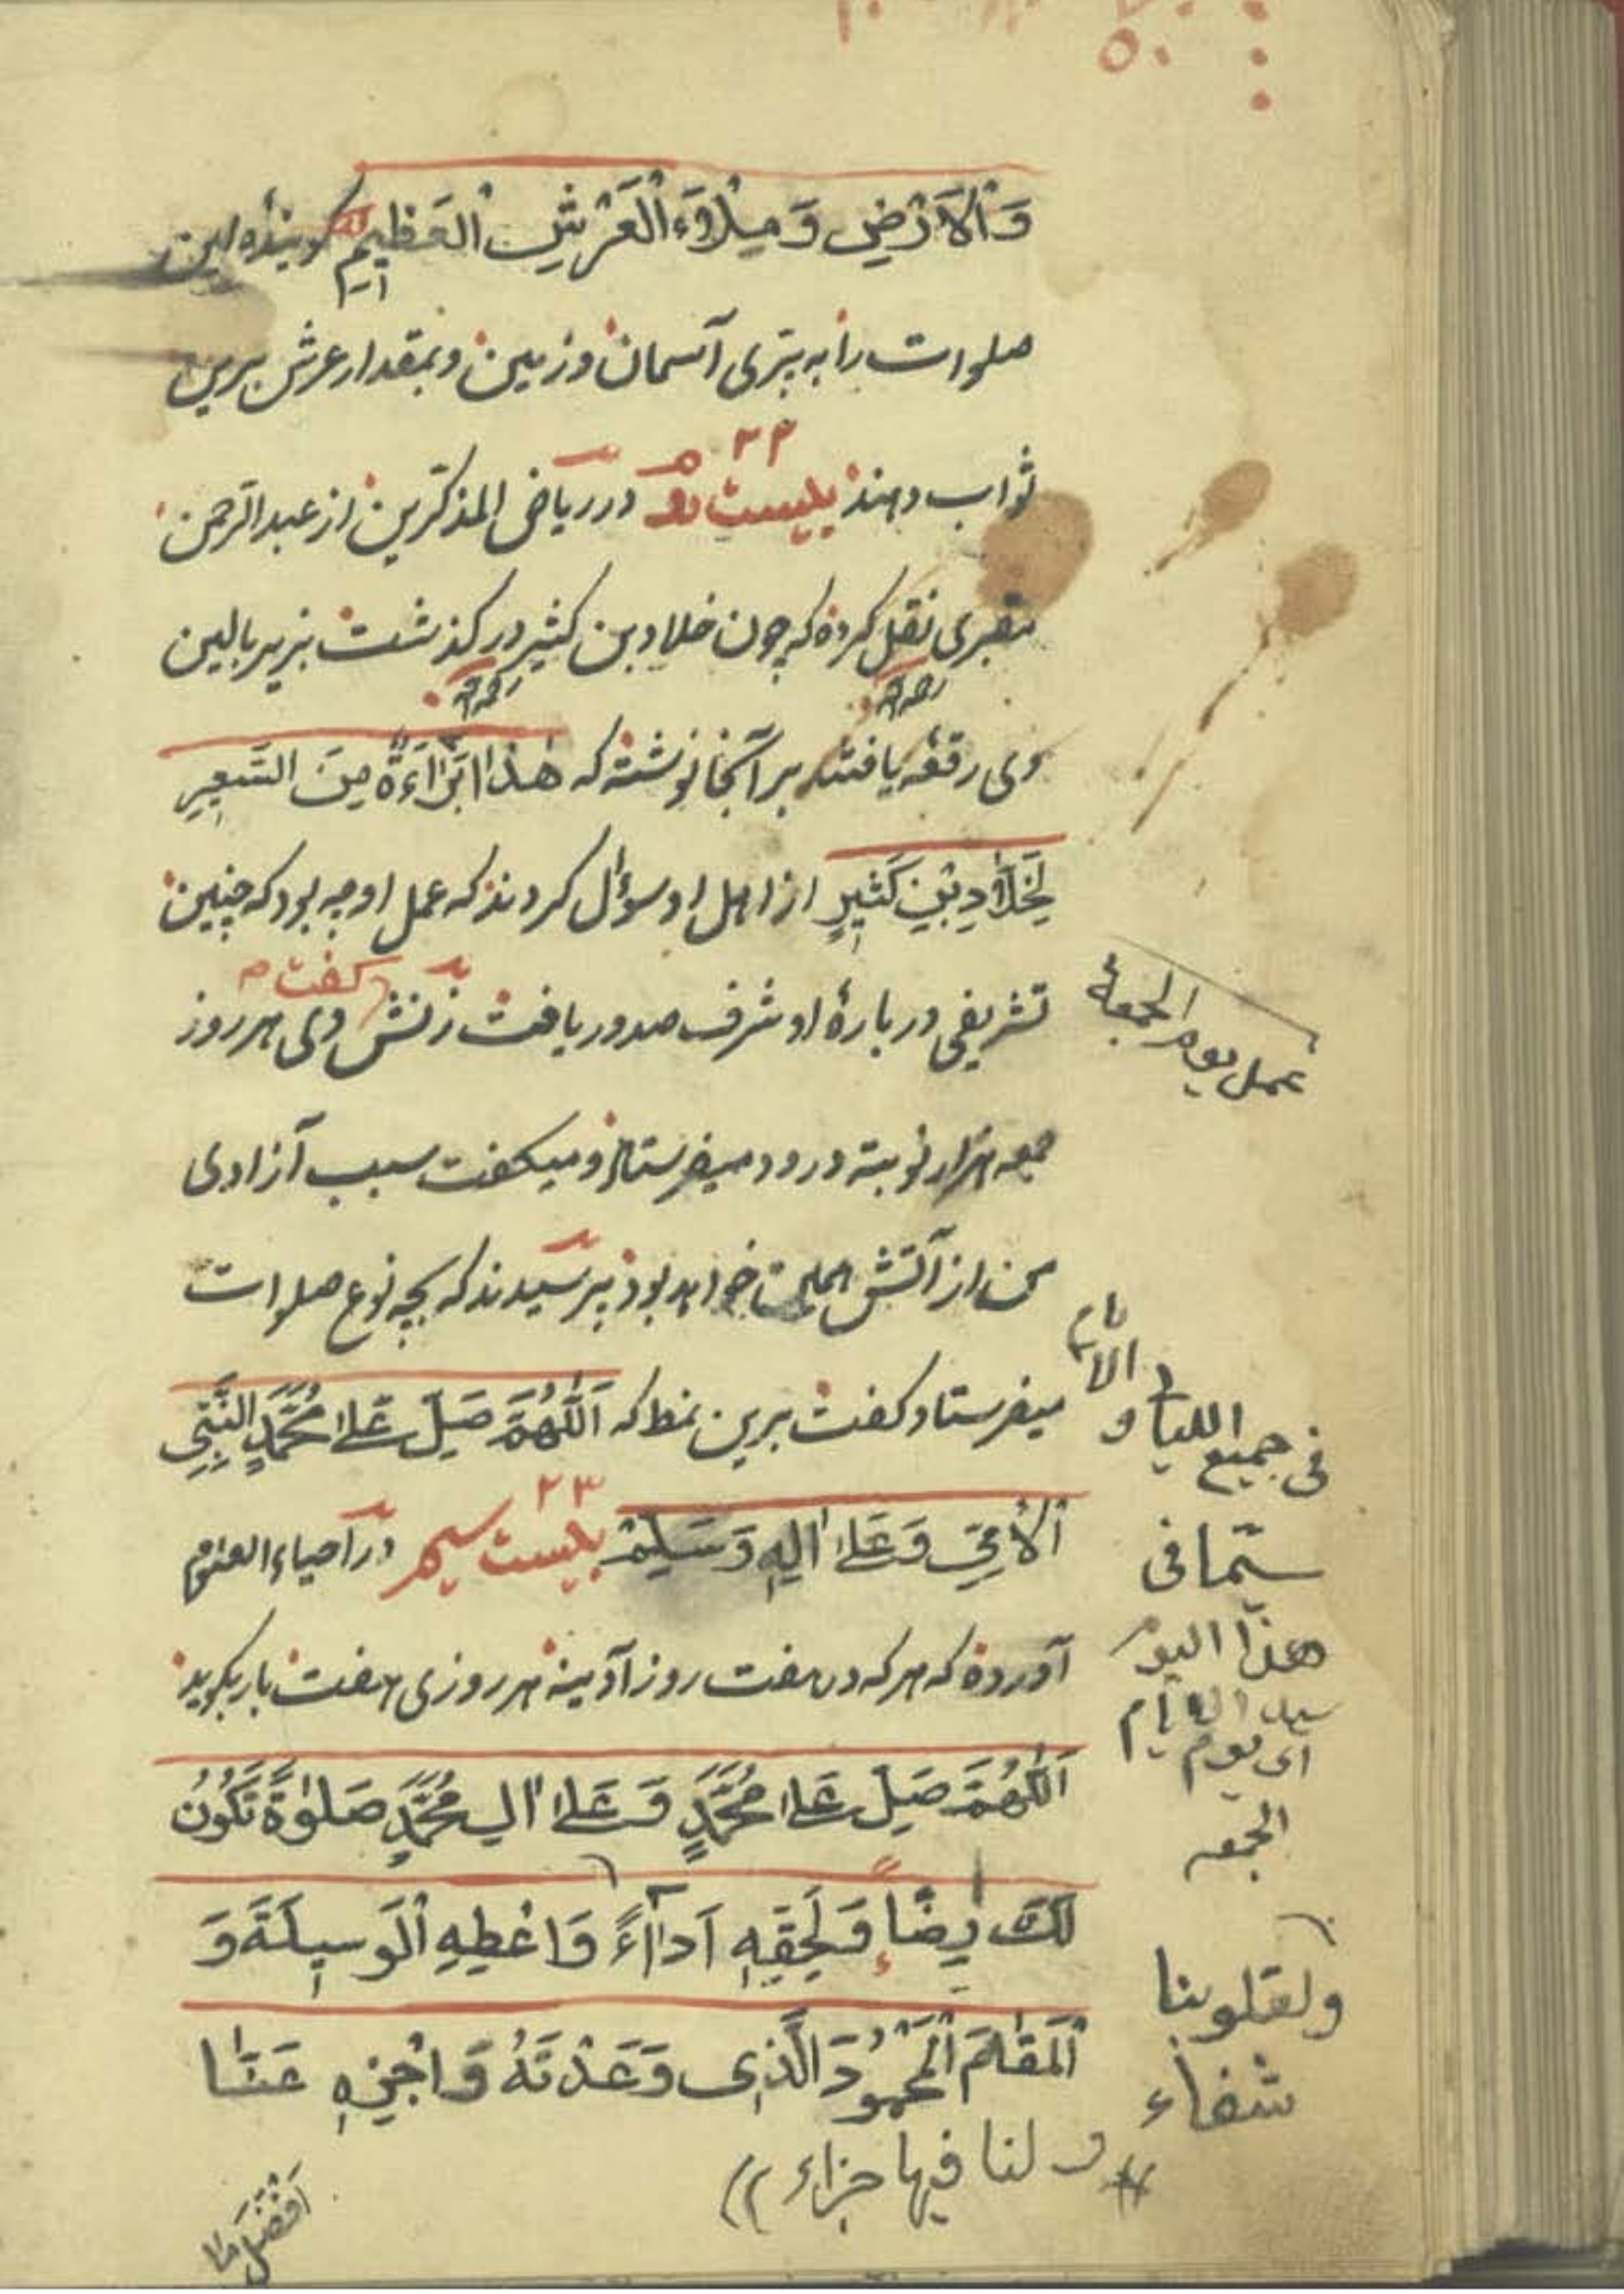 ۵۰
وَالْاَرْضِ وَمِلْاَءَ الْعَرْشِ الْعَظِيمِ كوینده این
صلوات را به پری آسمان و زمین و بمقدار عرش برین
۲۲
ثواب دهند بیست دوم در ریاض المذکرین از عبدالرحمن
نقل کرده که چون خلاد بن کثیر درکذشت بزیر بالین
وی رقعه یافتند بر آنجا نوشته که هٰذا بَرَاءَةٌ مِنَ السَّعِيرِ
لِخَلَّادِ بْنِ كَثِيرٍ از اهل او سؤال کردند که عمل او چه بود که چنین
تشریفی درباره او شرف صدور یافت زنش کفت وی هر روز
عمل يوم الجمعة
جمعه هزار نوبته درود میفرستاد و میکفت سبب آزادی
من از آتش خواهد بود پرسیدند که بچه نوع صلوات
میفرستاد کفت برین نمط که اَللّٰهُمَّ صَلِّ عَلٰى مُحَمَّدٍ النَّبِيِّ
۲۳
اَلْاُمِّيِّ وَعَلٰى اٰلِهِ وَسَلِّمْ بیست سیم در احیاء العلوم
آورده که هر که در هفت روز آدینه هر روزی هفت بار بکوید
اَللّٰهُمَّ صَلِّ عَلٰى مُحَمَّدٍ وَعَلٰى اٰلِ مُحَمَّدٍ صَلٰوةً تَكُونُ
لَكَ رِضًا وَلِحَقِّهِ اَدَاءً وَاَعْطِهِ الْوَسِيلَةَ وَ
اَلْمَقَامَ الْمَحْمُودَ الَّذِى وَعَدْتَهُ وَاجْزِهِ عَنَّا
فى جميع الليالى و الايام
سيما فى
هذا اليوم
سيد الايام
اى يوم
الجمعه
ولقلوبنا
شفاء
و لنا فيها جزاء
اَفْضَلَ مَا